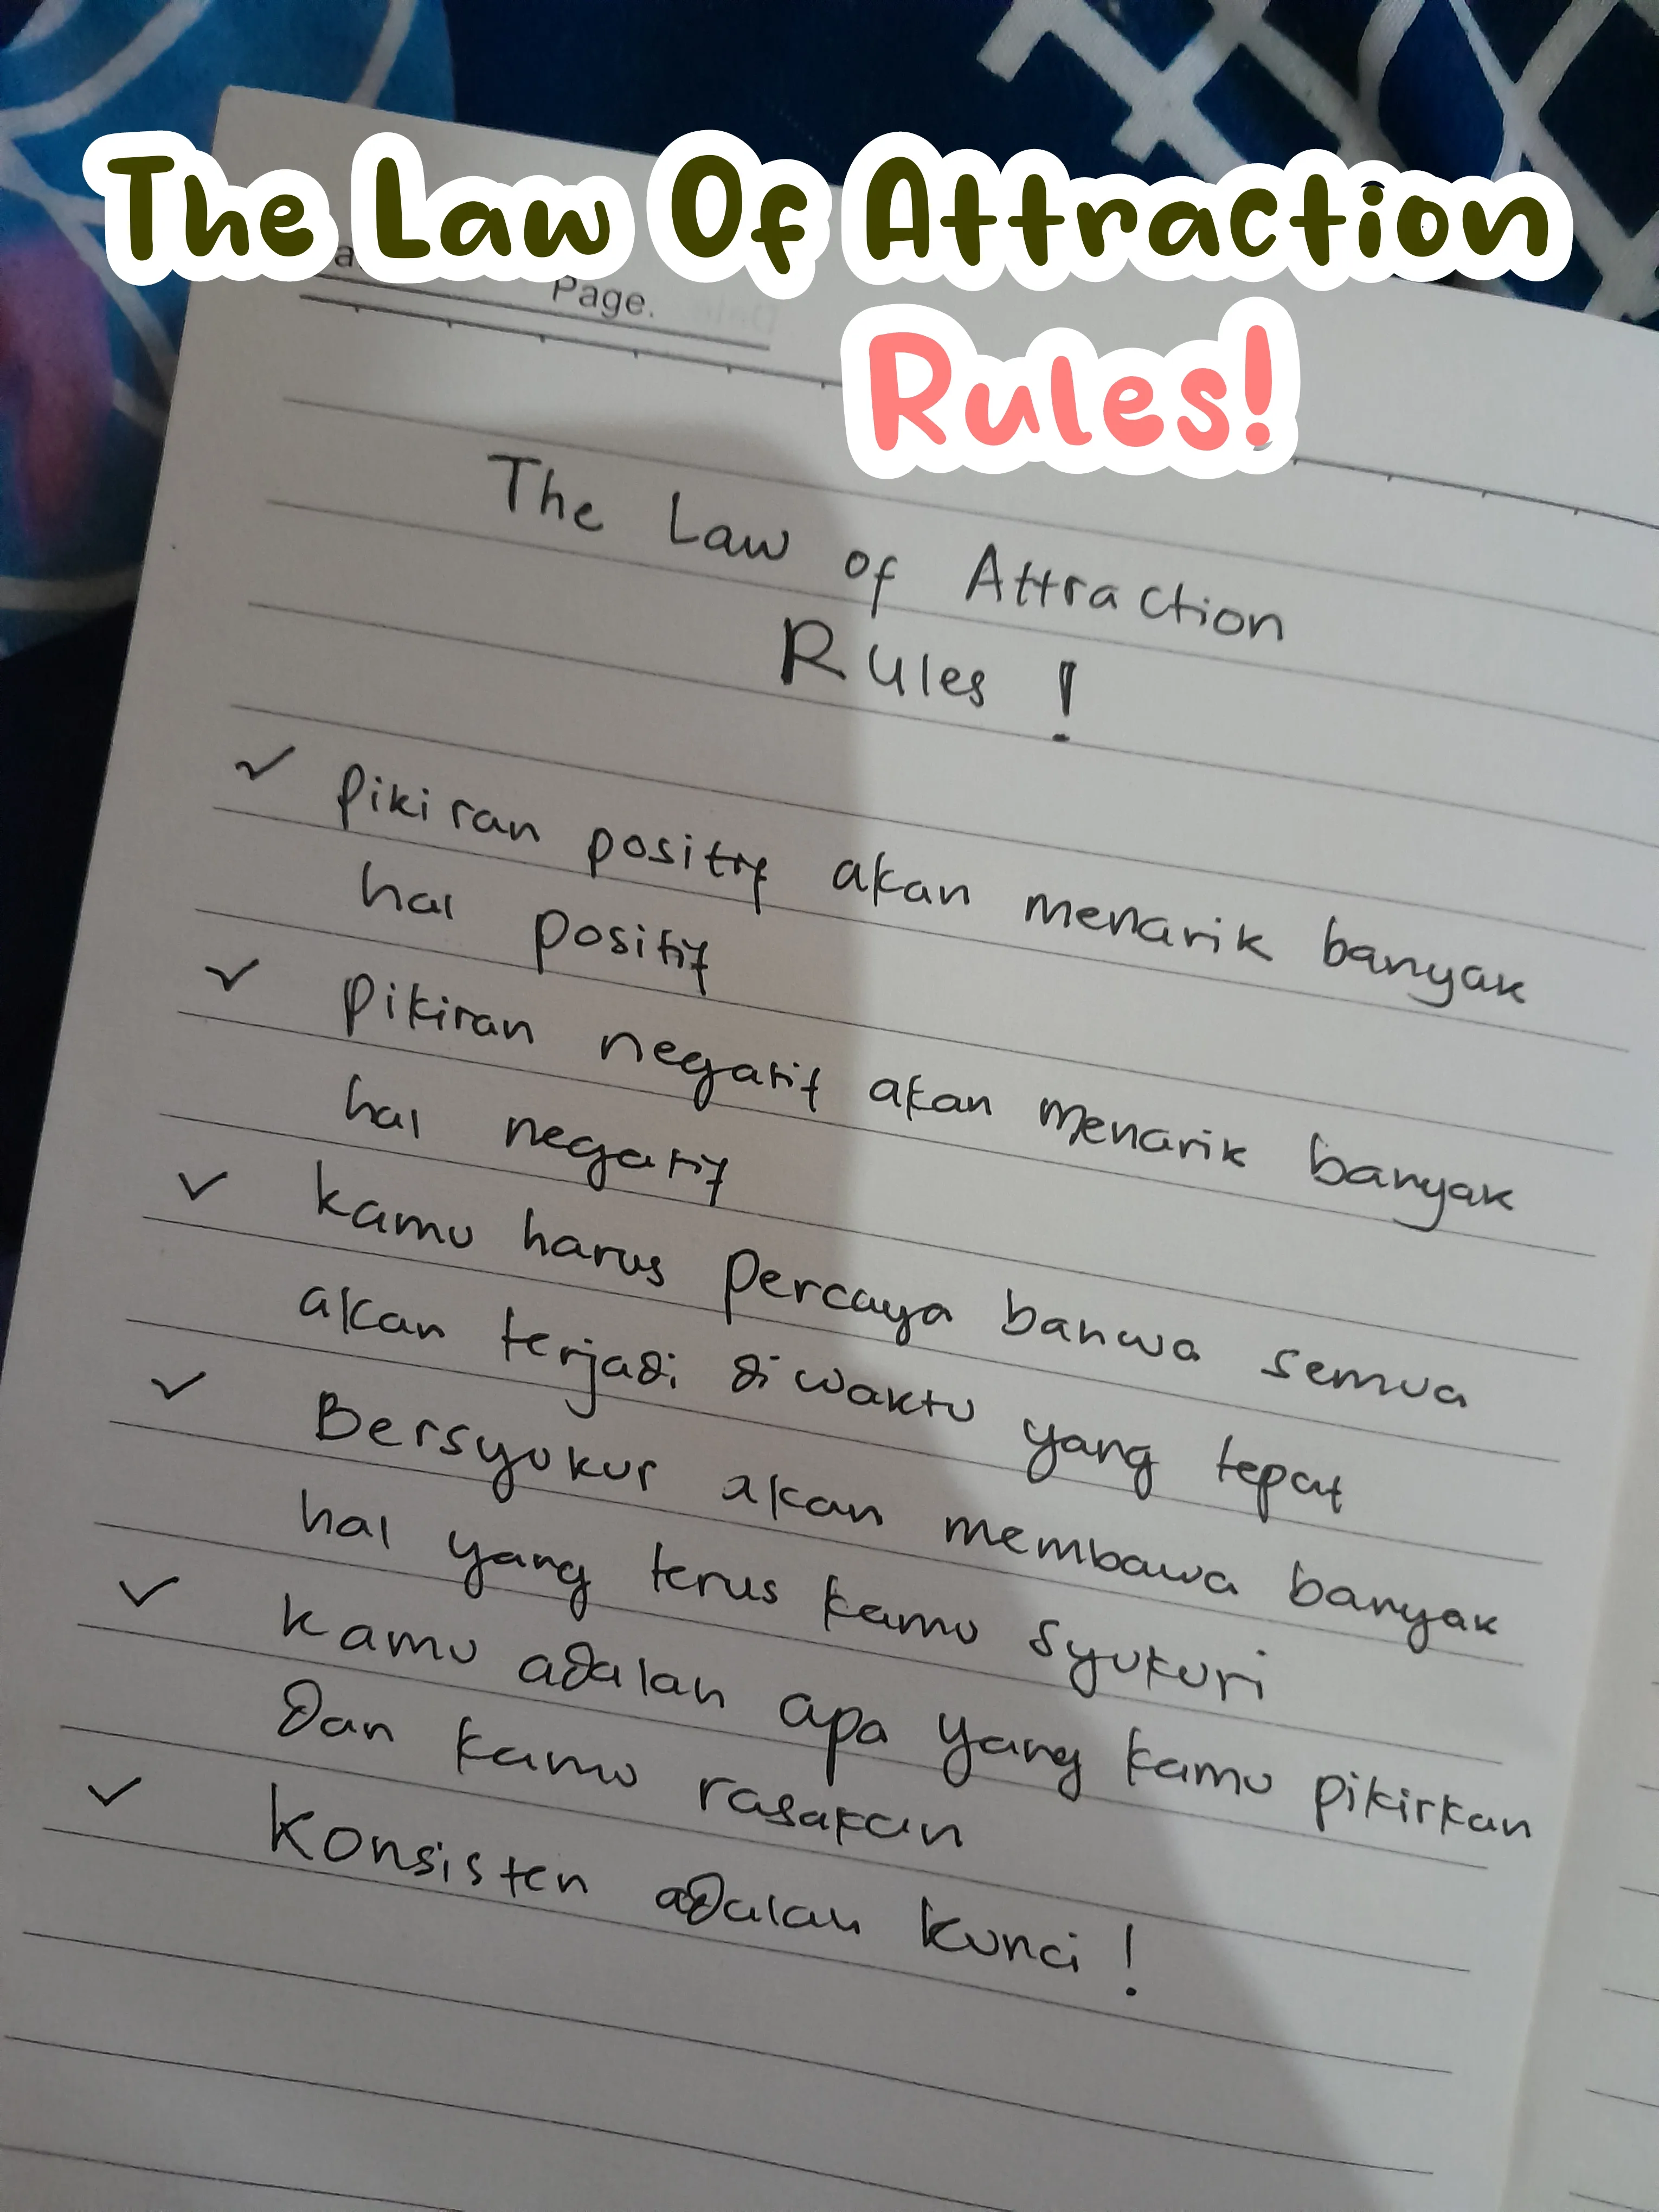 The Law Of Attraction
Rules!
Page.
The Law of Attraction
Rules !
✓ Pikiran positif akan menarik banyak
hal positif
✓ Pikiran negatif akan menarik banyak
hal negatif
✓ kamu harus percaya bahwa semua
akan terjadi diwaktu yang tepat
✓ Bersyukur akan membawa banyak
hal yang terus kamu syukuri
✓ kamu adalah apa yang kamu pikirkan
dan kamu rasakan
✓ Konsisten adalah kunci !